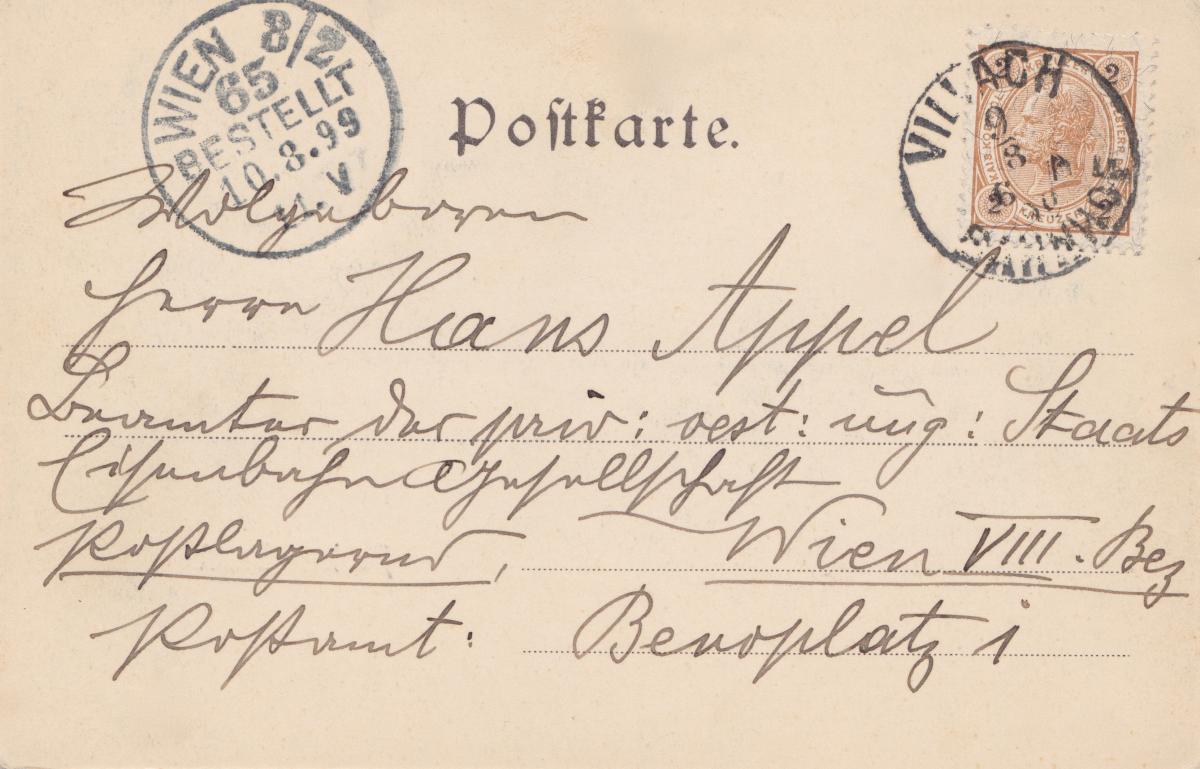 WIEN 8/2
65
BESTELLT
10.8.99
1.V
Postkarte.
VILLACH
9/8
2 2
2 2
KREUZ
Wolgeboren
Herrn Hans Appel
Beamter der priv: oest: ung: Staats
Eisenbahn Gesellschaft
Postlagernd, Wien VIII. Bez
Postamt: Benoplatz 1